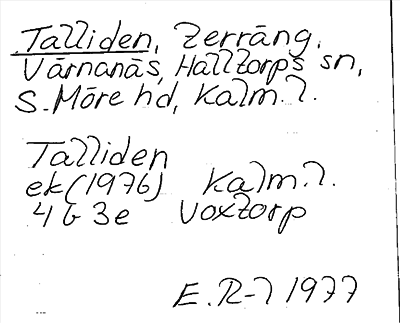 Talliden, Terräng.
Värnanäs, Halltorps sn,
S. Möre hd, Kalm. l.
Talliden
ek (1976) Kalm. l.
4 G 3e Voxtorp
E. R-l 1977